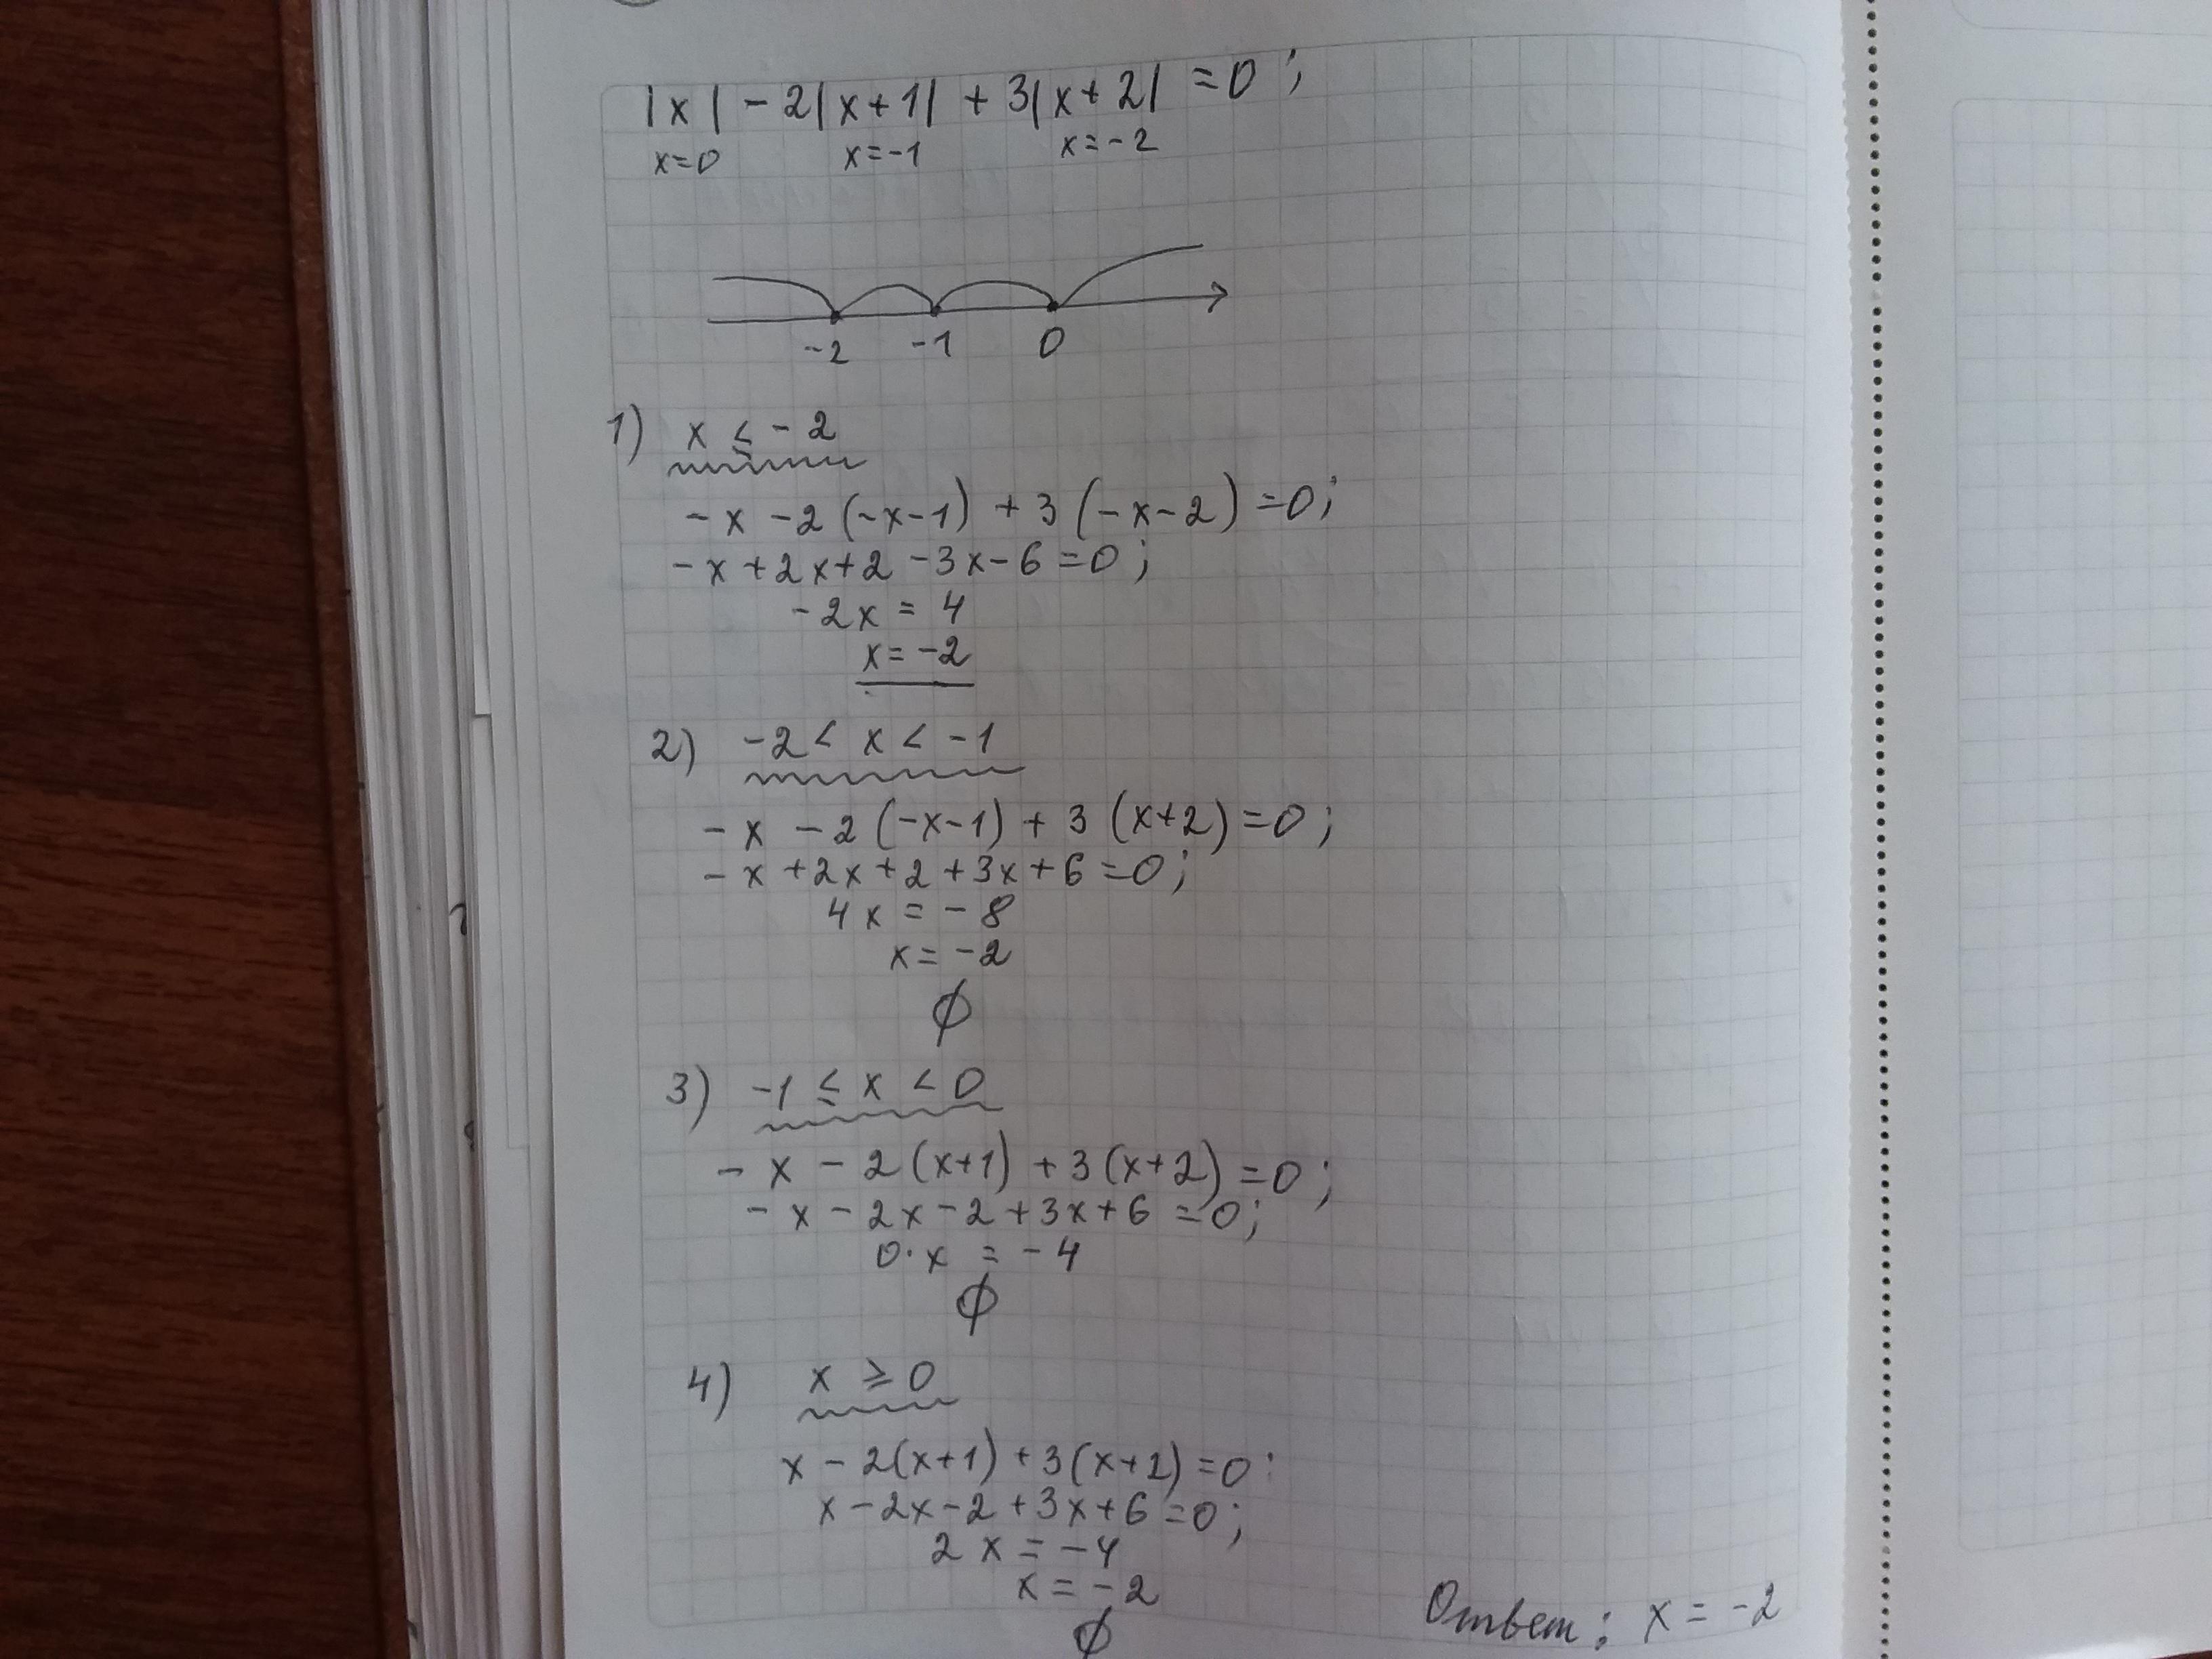 |x| - 2|x+1| + 3|x+2| = 0;
x=0 x=-1 x=-2
-2 -1 0
1) x ≤ -2
-x - 2(-x-1) + 3(-x-2) = 0;
-x + 2x + 2 - 3x - 6 = 0;
-2x = 4
x = -2
2) -2 < x < -1
-x - 2(-x-1) + 3(x+2) = 0;
-x + 2x + 2 + 3x + 6 = 0;
4x = -8
x = -2
∅
3) -1 ≤ x < 0
-x - 2(x+1) + 3(x+2) = 0;
-x - 2x - 2 + 3x + 6 = 0;
0·x = -4
∅
4) x ≥ 0
x - 2(x+1) + 3(x+2) = 0:
x - 2x - 2 + 3x + 6 = 0;
2x = -4
x = -2
∅
Ответ: x = -2